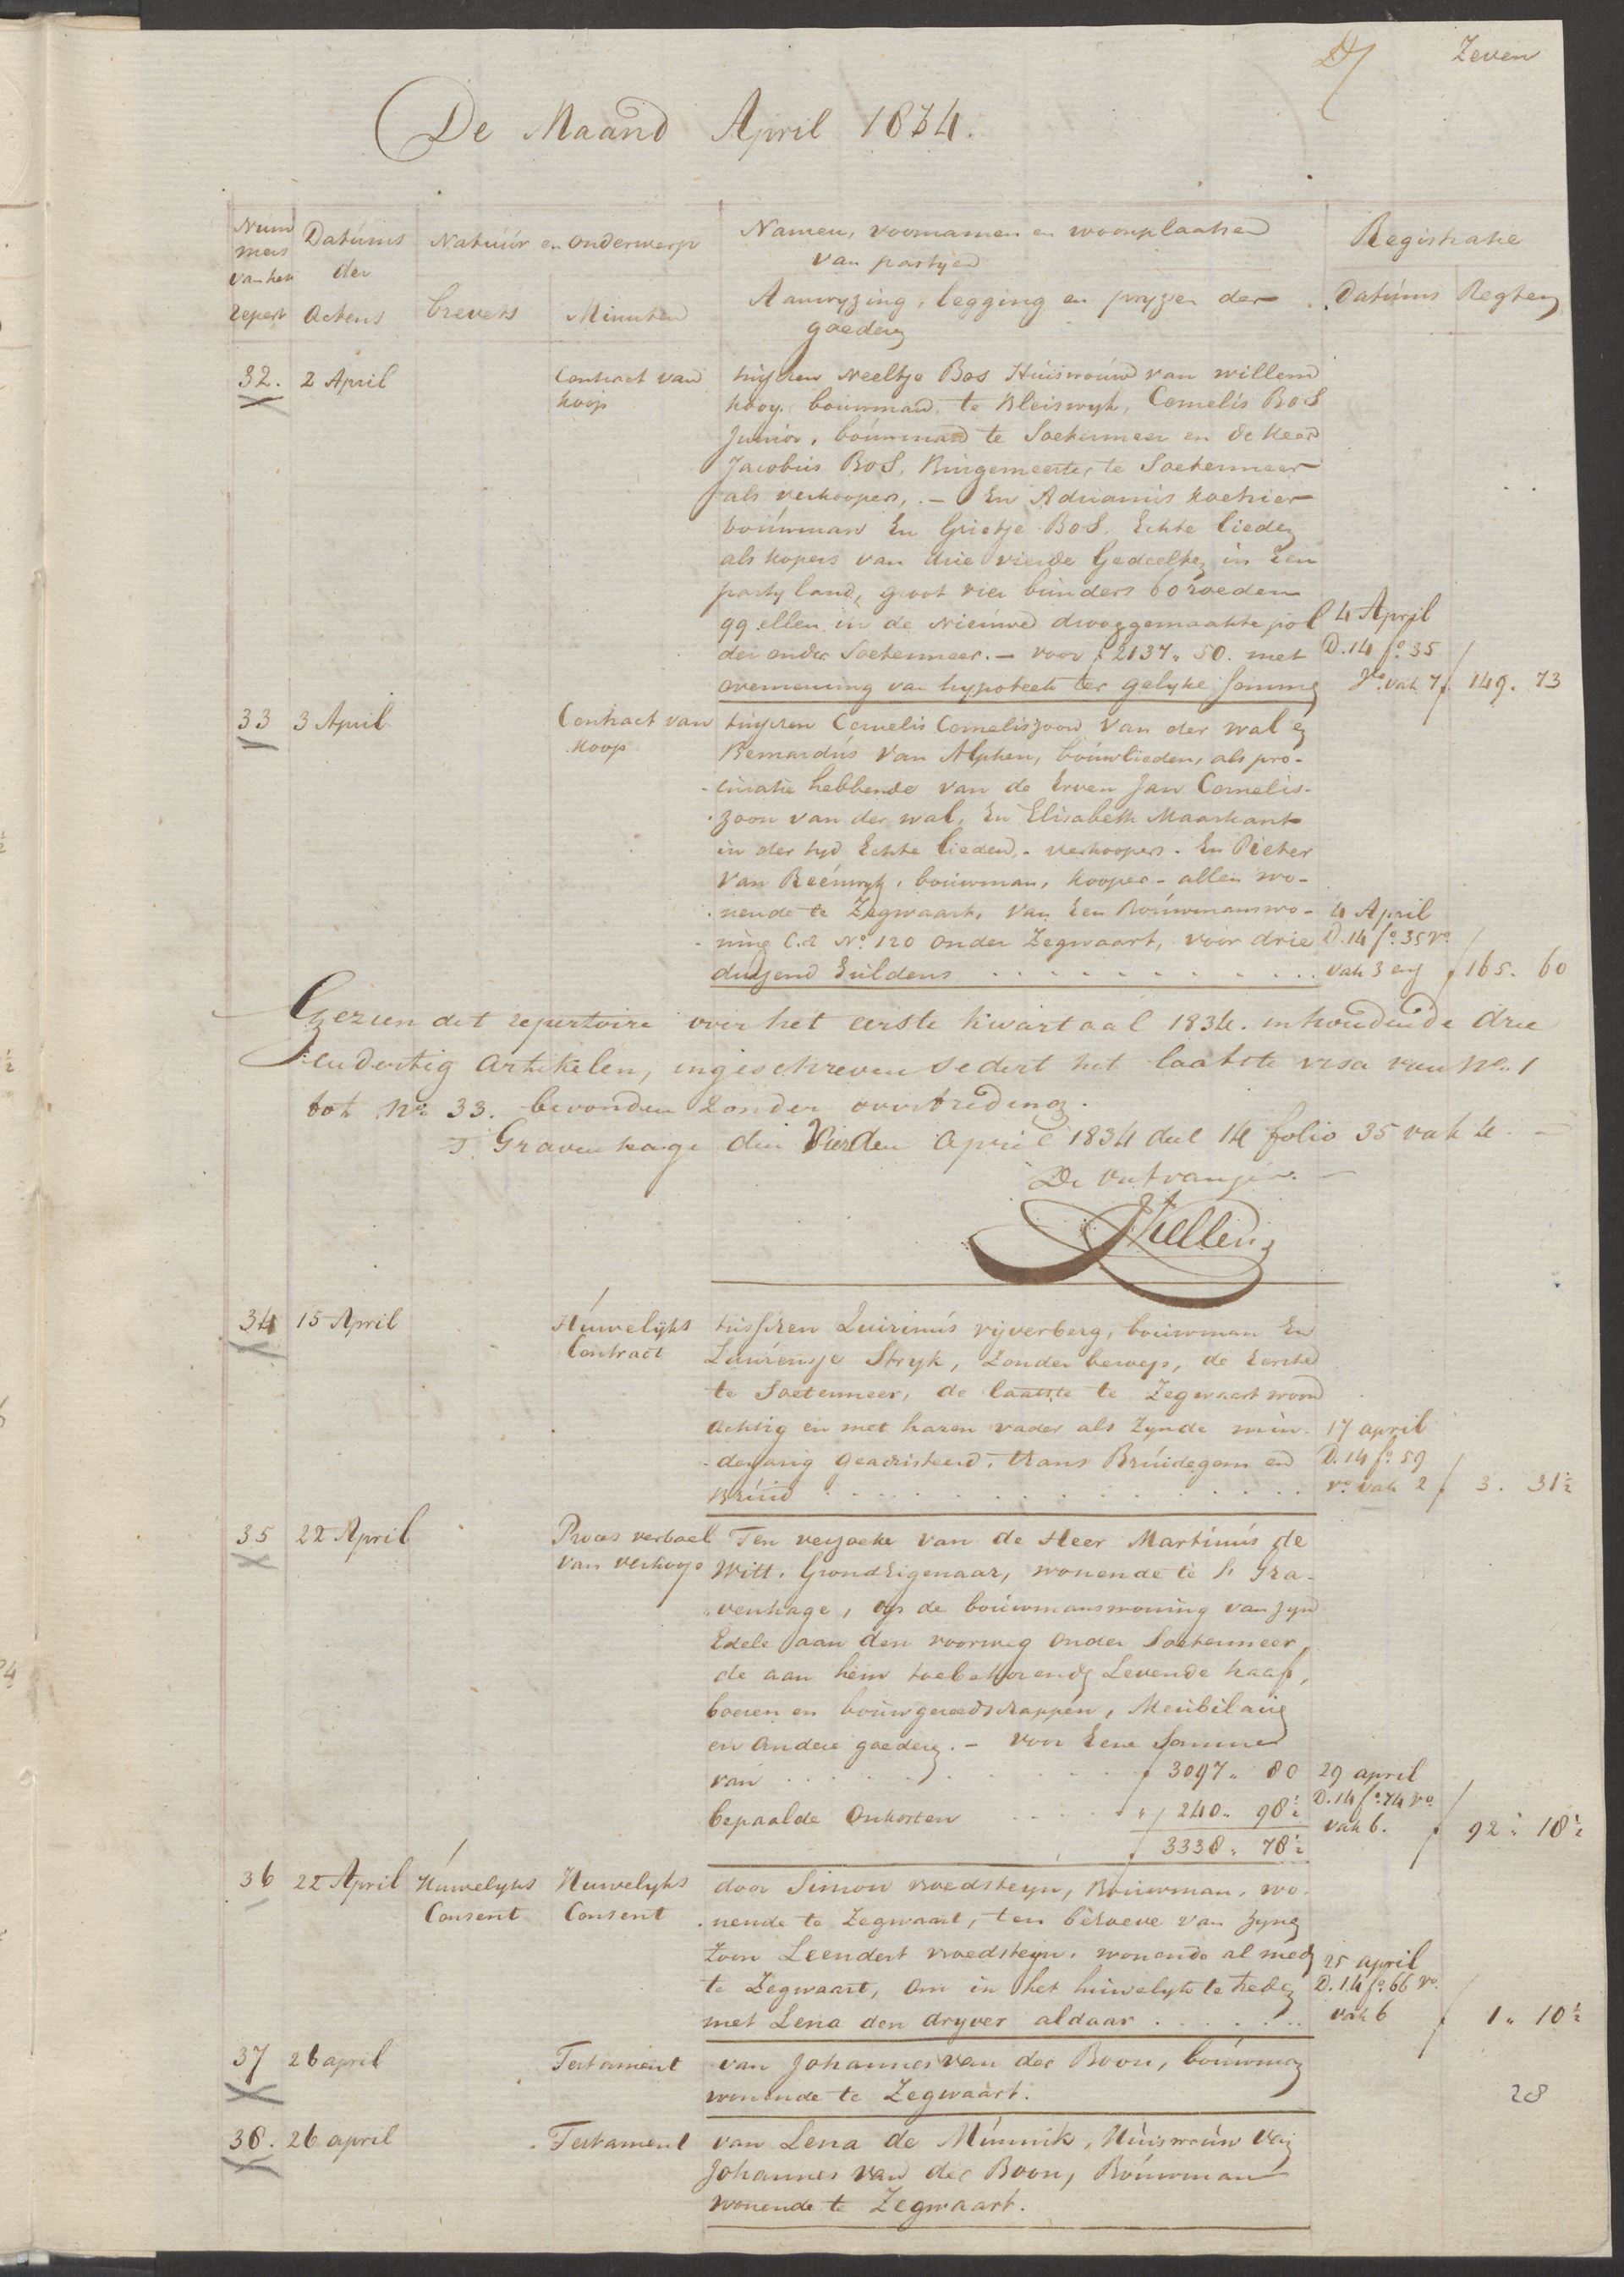 Zeven
De Maand April 1834.
Num
mers
van het
repert
Datums
der
Actens
Natuur en onderwerp
brevets
Minuten
Namen, voornamen en woonplaatsen
van partyen
Aanwyzing, legging en pryzen der
goederen
Registratie
Datums Regten
32. 2 April
Contract van
koop
tusschen Neeltje Bos Huisvrouw van willem
kooy, bouwman te Bleiswyk, Cornelis Bos
Junior, bouwman te Soetermeer en de Heer
Jacobus Bos, Burgemeester te Soetermeer
als verkoopers, - En Adrianus
bouwman En Grietje Bos, Echte lieden
als kopers van drie vierde Gedeelten in Een
party land, groot vier bunders 60 roeden
99 ellen in de Nieuwe drooggemaakte pol
der onder Soetermeer. - voor f 2137 " 50. met
overneming van hypoteek ter gelyke somme
4 April
D. 14 fo. 35
vak 7 f 149. 73
33 3 April
Contract van
koop
tusschen Cornelis Corneliszoon van der wal en
Bernardus van Alphen, bouwlieden, als pro-
curatie hebbende van de Erven Jan Cornelis-
zoon van der wal, En Elisabeth Maarkant
in der tyd Echte lieden, - verkoopers. En Pieter
van Reeuwyk, bouwman, kooper - allen wo-
nende te Zegwaart, van Een Bouwmanswo-
ning C.a No. 120 onder Zegwaart, voor drie
duizend Guldens
4 April
D. 14 fo. 35 vo.
vak 3 en f 165. 60
Gezien dit repertoire over het eerste kwartaal 1834. inhoudende drie
en dertig artikelen, ingeschreven sedert het laatste visa van No. 1
tot No. 33. bevonden zonder overtreding.
S Gravenhage den Vierden april 1834 deel 14 folio 35 vak 4.
De ontvanger.
34 15 April
Huwelyks
Contract
tusschen Quirinus vyverberg, bouwman En
Laurensje Stryk, zonder beroep, de Eerste
te Soetermeer, de laatste te Zegwaart woon
achtig en met haren vader als zynde min-
derjarig geadsisteerd, thans Bruidegom en
Bruid
17 april
D. 14 fo. 59
vo. vak 2 f 3. 31½
35 22 April
Proces verbael
van verkoop
Ten verzoeke van de Heer Martinus de
Witt, GrondEigenaar, wonende te s Gra-
venhage, op de bouwmanswoning van zyn
Edele aan den voorweg onder Soetermeer,
de aan hem toebehorende Levende haaf,
boeren en bouwgereedschappen, Meubilair
en andere goederen. - voor Eene Somme
van f 3097 " 80
bepaalde onkosten " 240 " 98½
f 3338 " 78½
29 april
D. 14 fo. 74 vo.
vak 6. f 92 " 18½
36 22 April Huwelyks
Consent
Huwelyks
Consent
door Simon Roedsteyn, Bouwman, wo-
nende te Zegwaart, ten behoeve van zynen
Zoon Leendert roedsteyn, wonende al mede
te Zegwaart, om in het huwelyk te treden
met Lena den dryver aldaar
25 april
D. 14 fo. 66 vo.
vak 6 f 1 " 10½
37 26 april
Testament
van Johannes van der Boon, bouwman
wonende te Zegwaart.
28
38. 26 april
Testament
van Lena de Munnik, Huisvrouw van
Johannes van der Boon, Bouwman
wonende te Zegwaart.